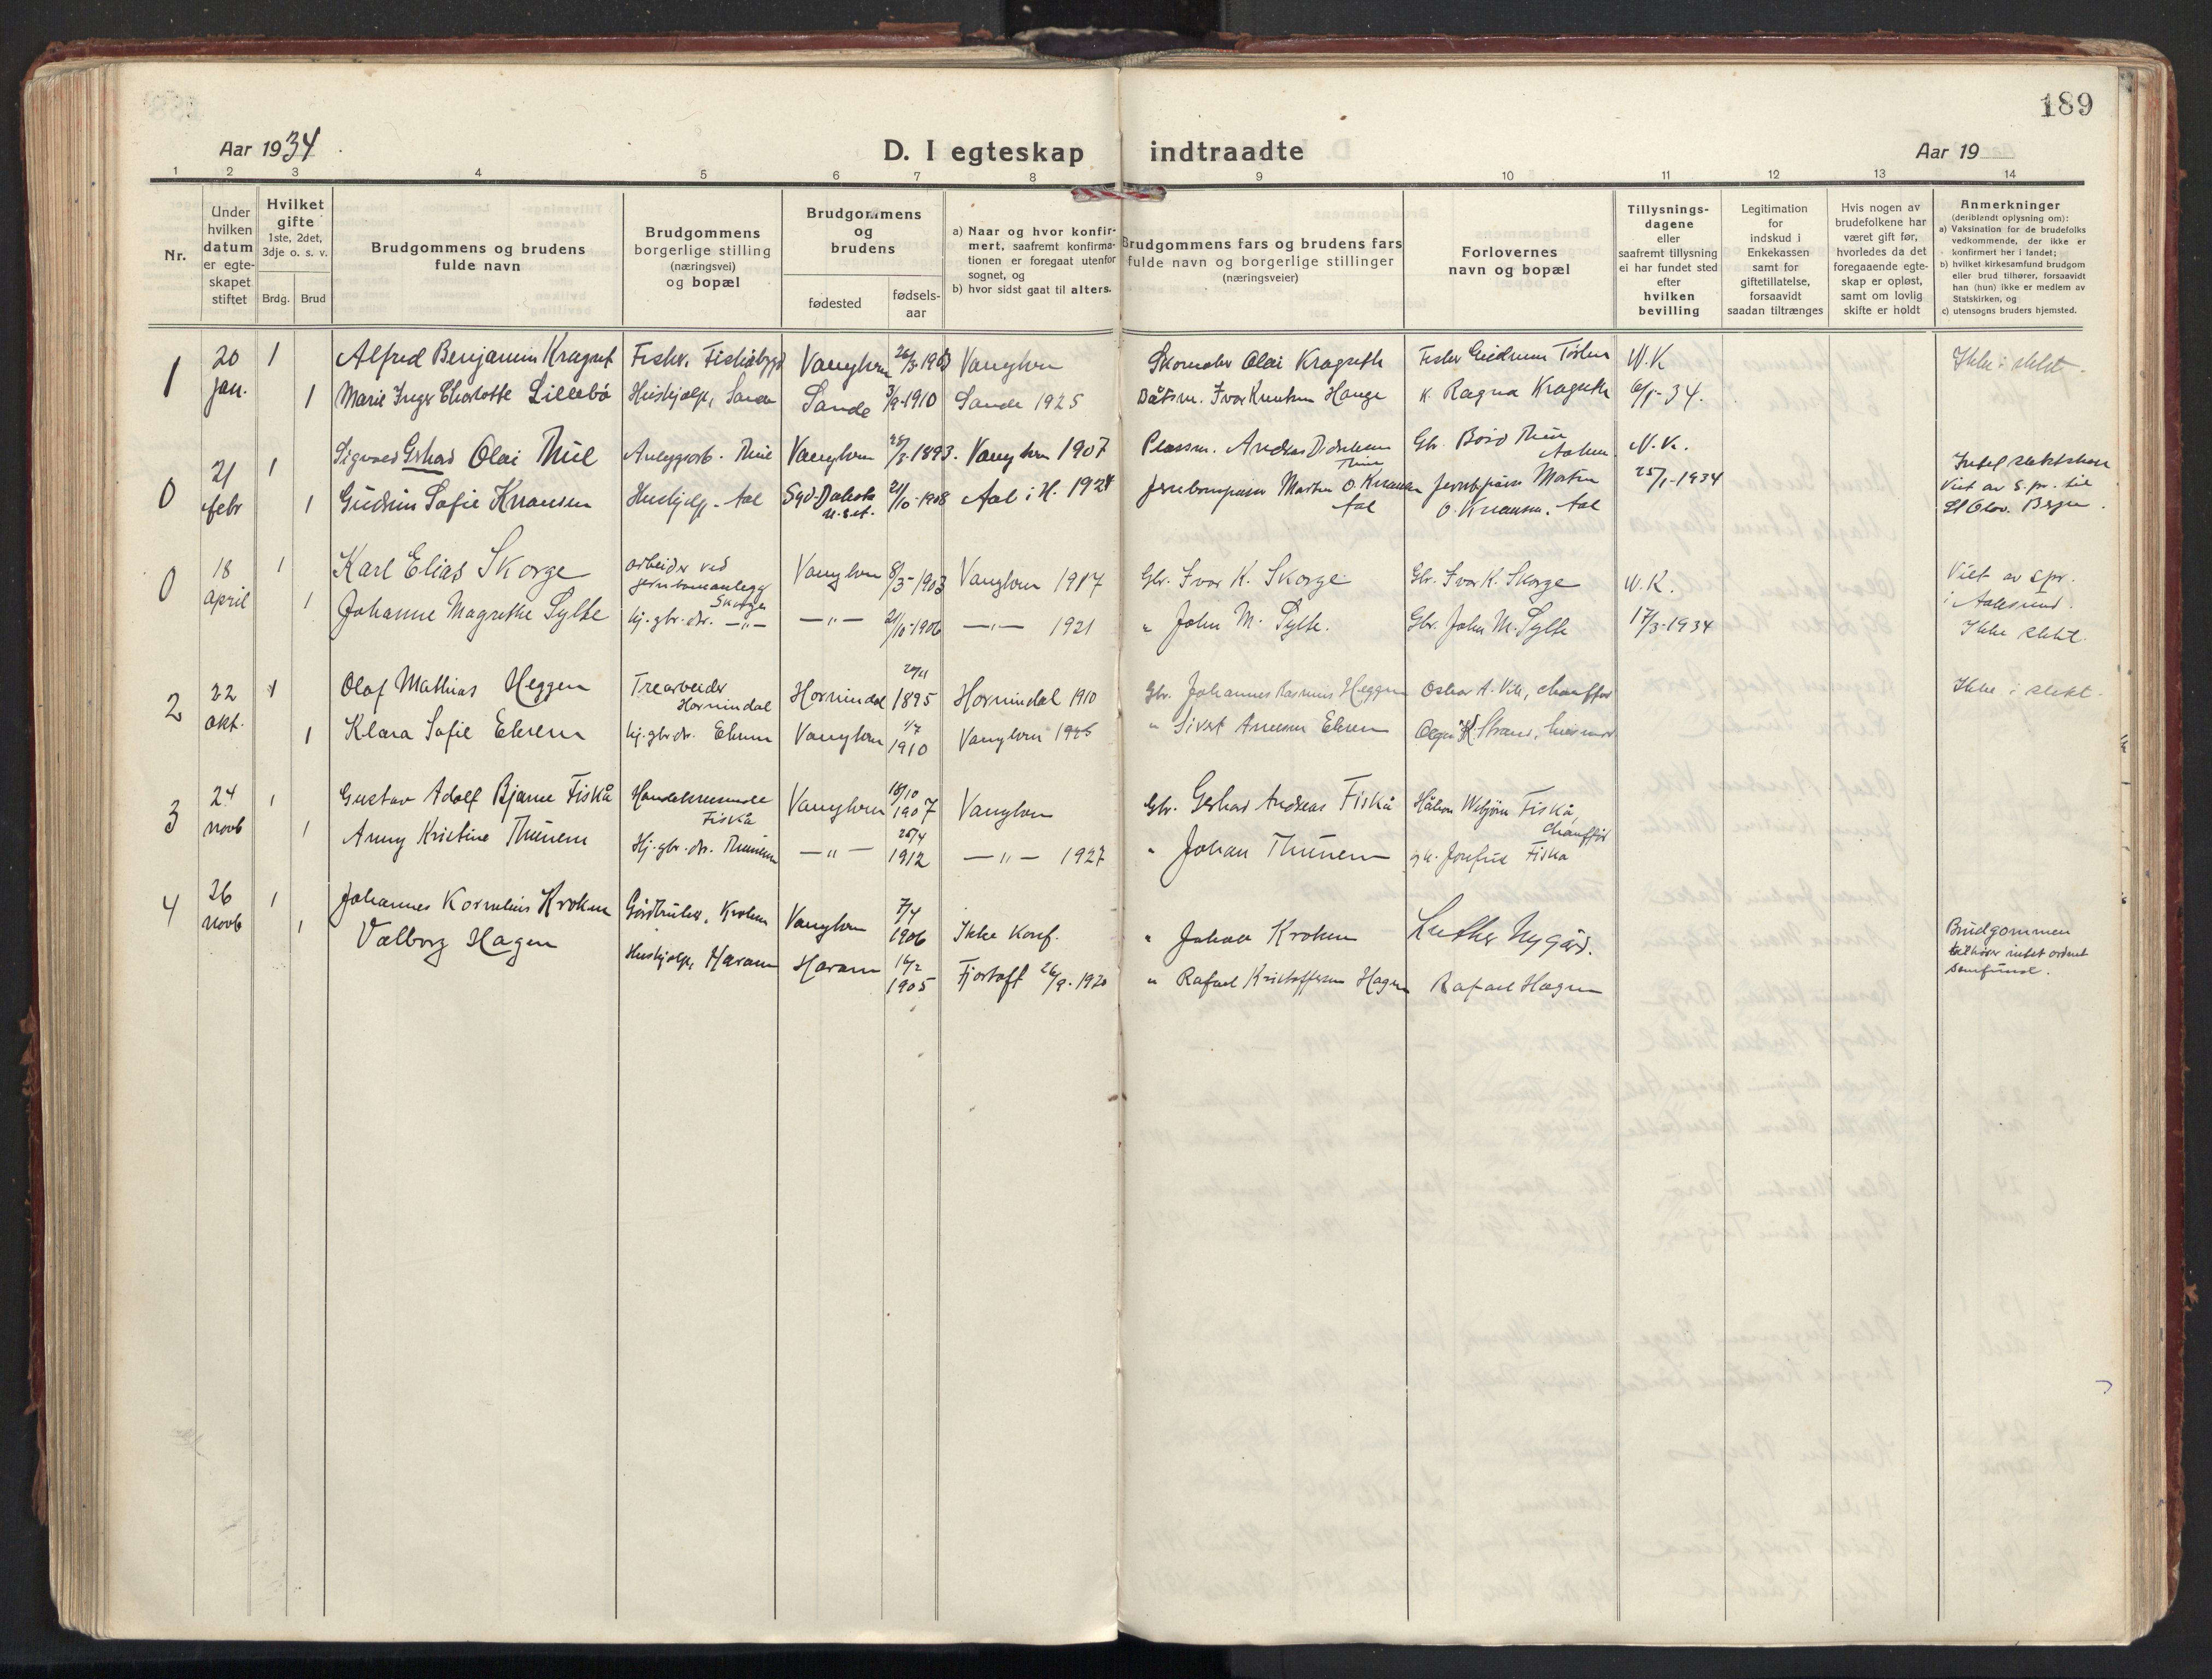 189
Aar 1934
D. I egteskap indtraadte
Aar 19
1 2 3 4 5 6 7 8 9 10 11 12 13 14
Nr.
Under
hvilken
datum
er egte-
skapet
stiftet
Hvilket
gifte
1ste, 2det,
3dje o. s. v.
Brdg. Brud
Brudgommens og brudens
fulde navn
Brudgommens
borgerlige stilling
(næringsvei)
og bopæl
Brudgommens
og
brudens
fødested
fødsels-
aar
a) Naar og hvor konfir-
mert, saafremt konfirma-
tionen er foregaat utenfor
sognet, og
b) hvor sidst gaat til alters.
Brudgommens fars og brudens fars
fulde navn og borgerlige stillinger
(næringsveier)
Forlovernes
navn og bopæl
Tillysnings-
dagene
eller
saafremt tillysning
ei har fundet sted
efter
hvilken
bevilling
Legitimation
for
indskud i
Enkekassen
samt for
giftetillatelse,
forsaavidt
saadan tiltrænges
Hvis nogen av
brudefolkene har
været gift før,
hvorledes da det
foregaaende egte-
skap er opløst,
samt om lovlig
skifte er holdt
Anmerkninger
(deriblandt oplysning om):
a) Vaksination for de brudefolks
vedkommende, der ikke er
konfirmert her i landet;
b) hvilket kirkesamfund brudgom
eller brud tilhører, forsaavidt
han (hun) ikke er medlem av
Statskirken, og
c) utensogns bruders hjemsted.
1 20 jan. 1 Alfred Benjamin Fisker, Vanylven Vanylven Skomaker Olai N.K Ikke i slekt.
1 Marie Inger Charlotte Lillebø Hushjelp, Sande Sande 3/9-1910 Sande 1925 Ivar Knutsen Hauge Ragna 6/1-34.
0 21 febr 1 Sigvald Gerhard Olai Thue Anleggsarb. Thue Vanylven 1893. Vanylven 1907 Plassm. Andreas N.K.
1 Gudrun Sofie Knausen Hushjelp. Aal Syd-Dakota 21/10-1908 Aal i H. 1924 Martin O. Knausen Aal Martin O. Knausen. Aal 25/1-1934 Viet av s.pr. til St Olav. Bergen.
0 18 april 1 Karl Elias Skorge arbeider ved jernbaneanlegg Skorge Vanylven 8/5-1903 Vanylven 1917 Gbr. Ivar K. Skorge Gbr. Ivar K. Skorge N.K. Viet av s.pr. i Aalesund.
1 Johanne Magrethe Sylte hj. gbr. dtr. —"— —"— 21/10-1906 —"— 1921 " John M. Sylte. Gbr. John M. Sylte 17/3-1934 Ikke slekt.
2 22 okt. 1 Olaf Mathias Heggen Trearbeider Hornindal Hornindal 20/11 1895 Hornindal 1910 Gbr. Johannes Rasmus Heggen Oskar A. Vik, chauffør Ikke i slekt.
1 Klara Sofie Ekrem hj. gbr. dtr. Ekrem Vanylven 1/7 1910 Vanylven " Sivert Ekrem
3 24 novb 1 Gustav Adolf Bjarne Fiskå Fiskå Vanylven 18/10 1907 Vanylven Gbr. Gerhard Andreas Fiskå Håkon Fiskå, chauffør
1 Anny Kristine Thunem Hj. gbr. dtr. Thunem —"— 25/4 1912 —"— 1927 " Johan Thunem Fiskå
4 26 novb 1 Johannes Kornelius Kroken Gårdbruker, Kroken Vanylven 7/4 1906 Ikke konf. " Johan Kroken Luther Nygård. Brudgommen tilhører intet ordent samfund.
1 Valborg Hagen Hushjelp, Haram Haram 16/2 1905 Fjortoft 26/9-1920 " Rafael Kristoffersen Hagen Rafael Hagen